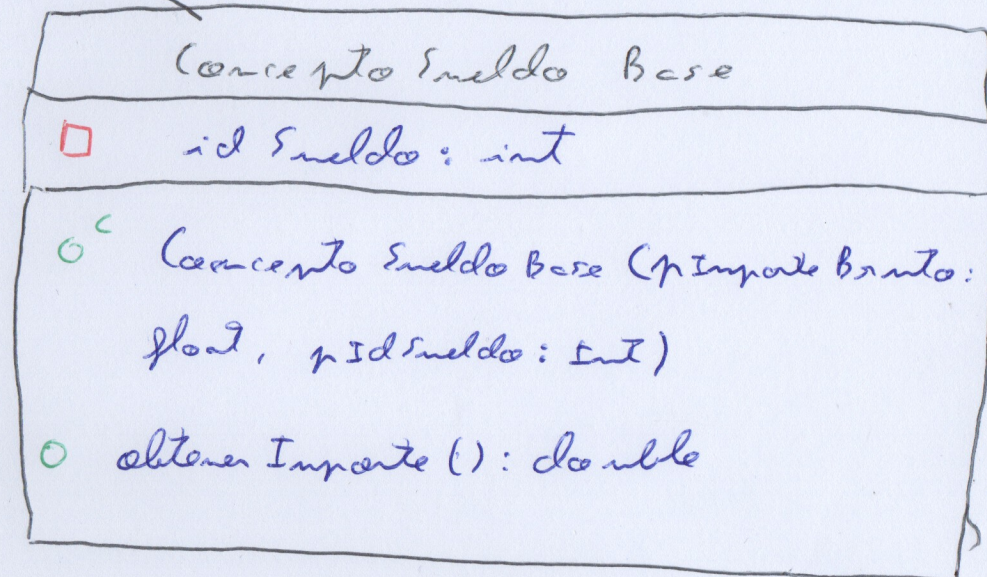 Concepto Sueldo Base
id Sueldo: int
c Concepto Sueldo Base (pImporte Bruto:
float, pIdSueldo: Int)
obtener Importe(): double